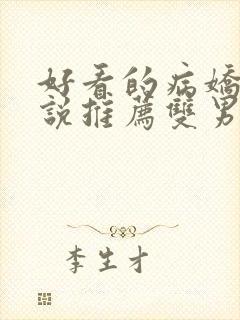 好看的病嬌
說推薦雙男
李生才